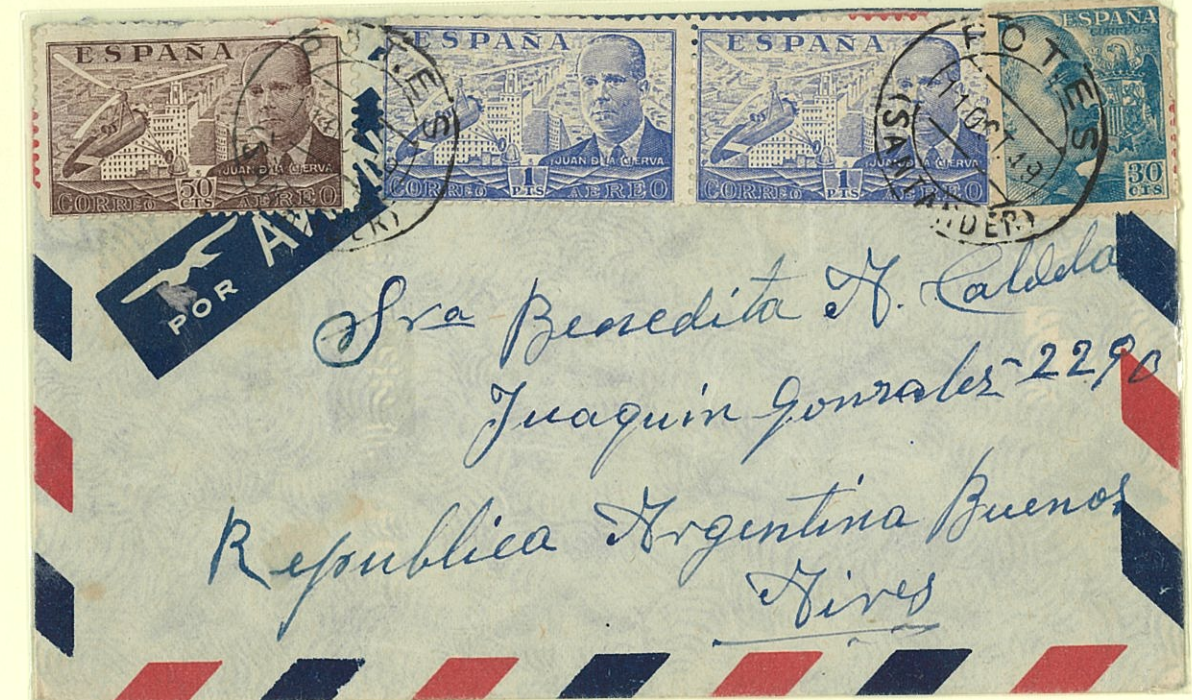 ESPAÑA
50 CTS
JUAN DE LA CIERVA
CORREO AEREO
ESPAÑA
1 PTS
JUAN DE LA CIERVA
CORREO AEREO
ESPAÑA
1 PTS
JUAN DE LA CIERVA
CORREO AEREO
ESPAÑA
CORREOS
30 CTS
POTES
POTES
11 OCT. 49
(SANTANDER)
POR AVION
Sra Benedita A.
Juaquin Gonzalez 2290
Republica Argentina Buenos
Aires